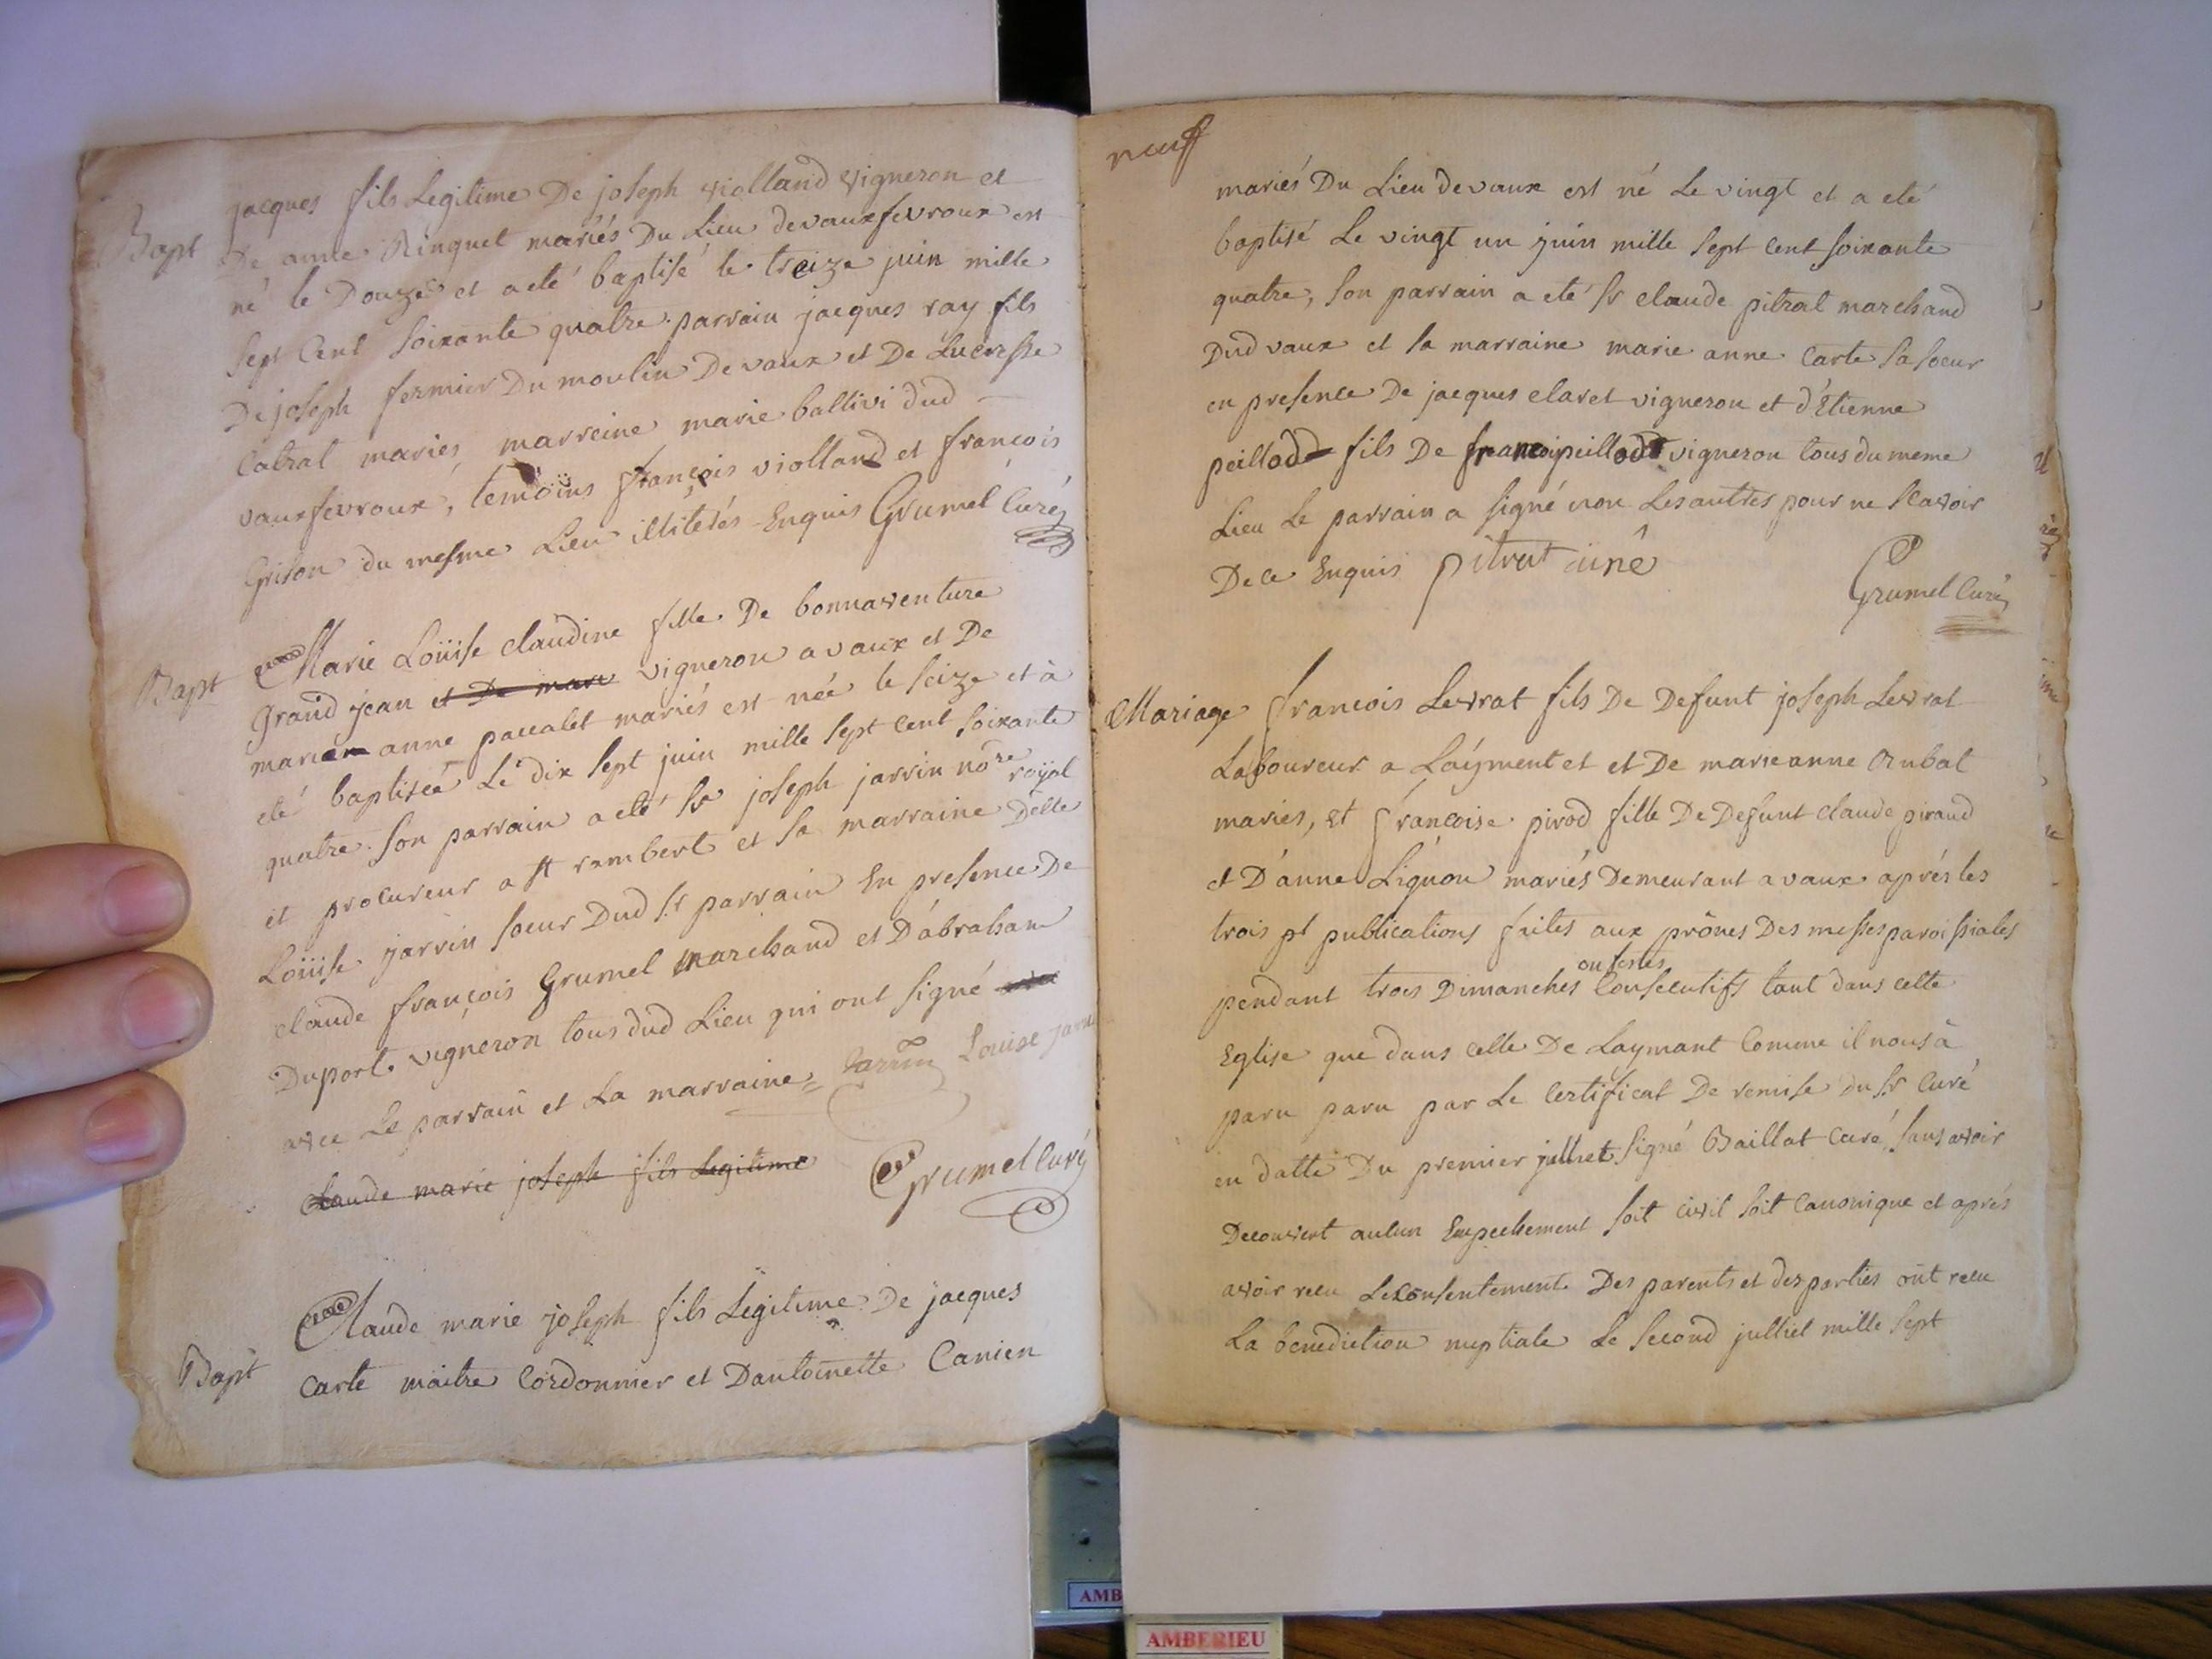 Bapt
jacques fils Legitime De joseph violland vigneron et
De anne Ringuet mariés Du Lieu devauxfevroux est
né le Douze et a eté baptisé le treize juin mille
sept Cent soixante quatre. parrain jacques ray fils
De joseph fermier Du moulin De vaux et De Lucresse
Catrat mariés, marreine marie ballivi dud
vauxfevroux, temoins françois violland et françois
Grison du mesme Lieu illiterés Enquis Grumel Curé
Bapt
Marie Loüise claudine fille De bonnaventure
grand jean et De mare vigneron a vaux et De
marie anne paccalet mariés est née le seize et à
eté baptisée Le dix sept juin mille sept cent soixante
quatre. son parrain a eté sr joseph jarrin nore royal
et procureur a st rambert et sa marraine Delle
Loüise jarrin soeur Dud sr parrain En presence De
claude françois Grumel marchand et D'abraham
Duport vigneron tous dud Lieu qui ont signé
avec Le parrain et La marraine Jarrin Louise jarrin
Claude marie joseph fils Legitime Grumel Curé
Bapt
Claude marie joseph fils Legitime De jacques
Carte maitre Cordonnier et Dantoinette Canien
neuf
mariés Du Lieu de vaux est né Le vingt et a eté
baptisé Le vingt un juin mille sept Cent soixante
quatre, son parrain a eté sr claude pitrat marchand
Dud vaux et sa marraine marie anne Carte sa soeur
en presence De jacques claret vigneron et d'Etienne
peillod fils De françoi peillod vigneron tous du meme
Lieu Le parrain a signé non Les autres pour ne sçavoir
De ce Enquis pitrat ainé
Grumel Curé
Mariage
francois Levrat fils De Defunt joseph Levrat
Laboureur a Layment et et De marie anne
mariés, et françoise pirod fille De Defunt claude piraud
et D'anne Liguon mariés Demeurant a vaux aprés les
trois pt publications faites aux prônes Des messes paroissiales
pendant trois Dimanches ou festes Consecutifs tant dans cette
Eglise que dans celle De Laymant Comme il nous à
paru paru par Le Certificat De remise du sr Curé
en datte Du premier julliet signé Baillat Curé sans avoir
Decouvert aucun Empechement soit civil soit Canonique et aprés
avoir recu Le Consentement Des parents et des parties ont recu
La benediction nuptiale Le second julliet mille sept
AMB
AMBERIEU